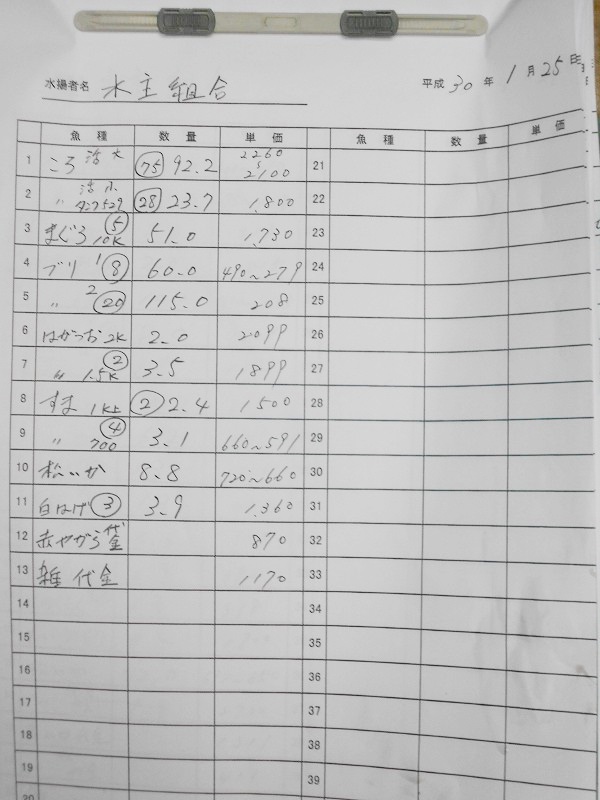 水揚者名 水主組合
平成 30 年 1 月 25 日
魚種 数量 単価 魚種 数量 単価
1 ころ 活大 75 92.2 2260 2100 21
2 〃 活小 28 23.7 1,800 22
3 まぐろ 5 10K 51.0 1,730 23
4 ブリ 1 8 60.0 490~279 24
5 〃 2 20 115.0 208 25
6 はがつお 2K 2.0 2099 26
7 〃 2 1.5K 3.5 1899 27
8 すま 1K上 2 2.4 1500 28
9 〃 4 700 3.1 660~591 29
10 松いか 8.8 720~660 30
11 白はげ 3 3.9 1,360 31
12 赤やがら 代金 870 32
13 雑 代金 1170 33
14 34
15 35
16 36
17 37
18 38
19 39
20